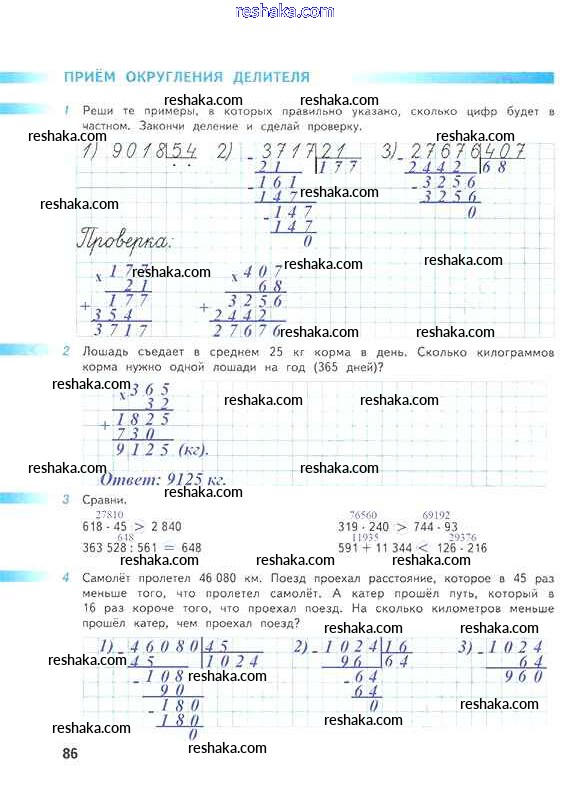 reshaka.com
ПРИЁМ ОКРУГЛЕНИЯ ДЕЛИТЕЛЯ
reshaka.com reshaka.com
1 Реши те примеры, в которых правильно указано, сколько цифр будет в
reshaka.com reshaka.com
частном. Закончи деление и сделай проверку.
1) 9018 54 2) 3717 21 3) 27676 407
reshaka.com reshaka.com
- 21 177 - 2442 68
- 161 - 3256
147 3256
reshaka.com
- 147 0
147
0
Проверка:
reshaka.com reshaka.com
x 177 x 407
21 68
+ 177 + 3256
354 2442
reshaka.com
3717 27676
reshaka.com reshaka.com
2 Лошадь съедает в среднем 25 кг корма в день. Сколько килограммов
корма нужно одной лошади на год (365 дней)?
reshaka.com reshaka.com
x 365
32
reshaka.com reshaka.com
+ 1825
730
9125 (кг).
reshaka.com reshaka.com
Ответ: 9125 кг.
reshaka.com reshaka.com
3 Сравни.
27810 76560 69192
618 · 45 > 2 840 319 · 240 > 744 · 93
648 11935 29376
363 528 : 561 = 648 591 + 11 344 < 126 · 216
reshaka.com reshaka.com
4 Самолёт пролетел 46 080 км. Поезд проехал расстояние, которое в 45 раз
меньше того, что пролетел самолёт. А катер прошёл путь, который в
16 раз короче того, что проехал поезд. На сколько километров меньше
прошёл катер, чем проехал поезд?
reshaka.com reshaka.com
1) - 46080 45 2) - 1024 16 3) - 1024
45 1024 96 64 64
reshaka.com reshaka.com
- 108 - 64 960
90 64
- 180 0
180
reshaka.com reshaka.com
0
reshaka.com
86